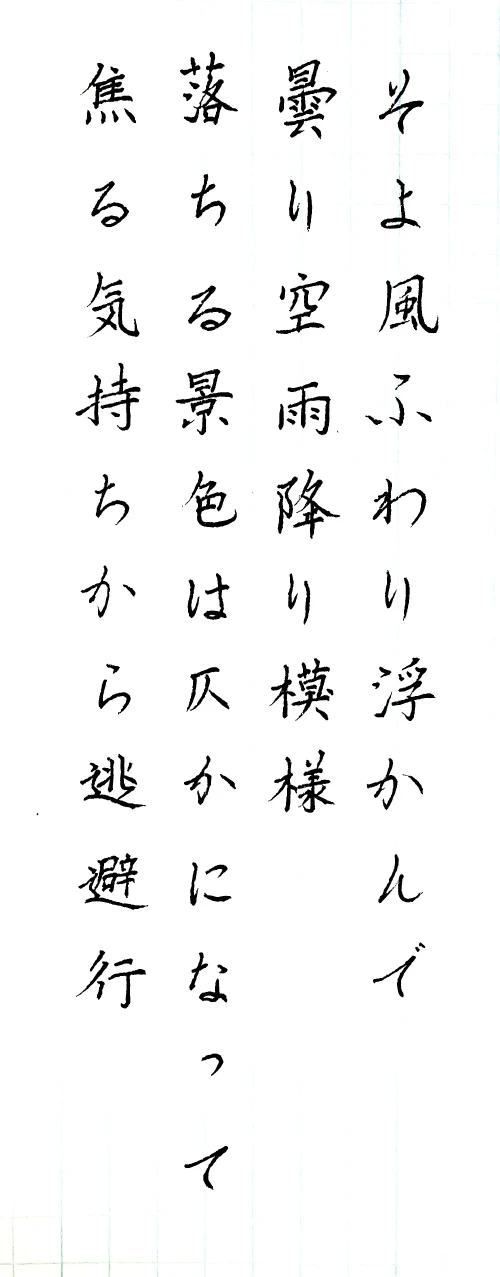 そよ風ふわり浮かんで
曇り空雨降り模様
落ちる景色は仄かになって
焦る気持ちから逃避行